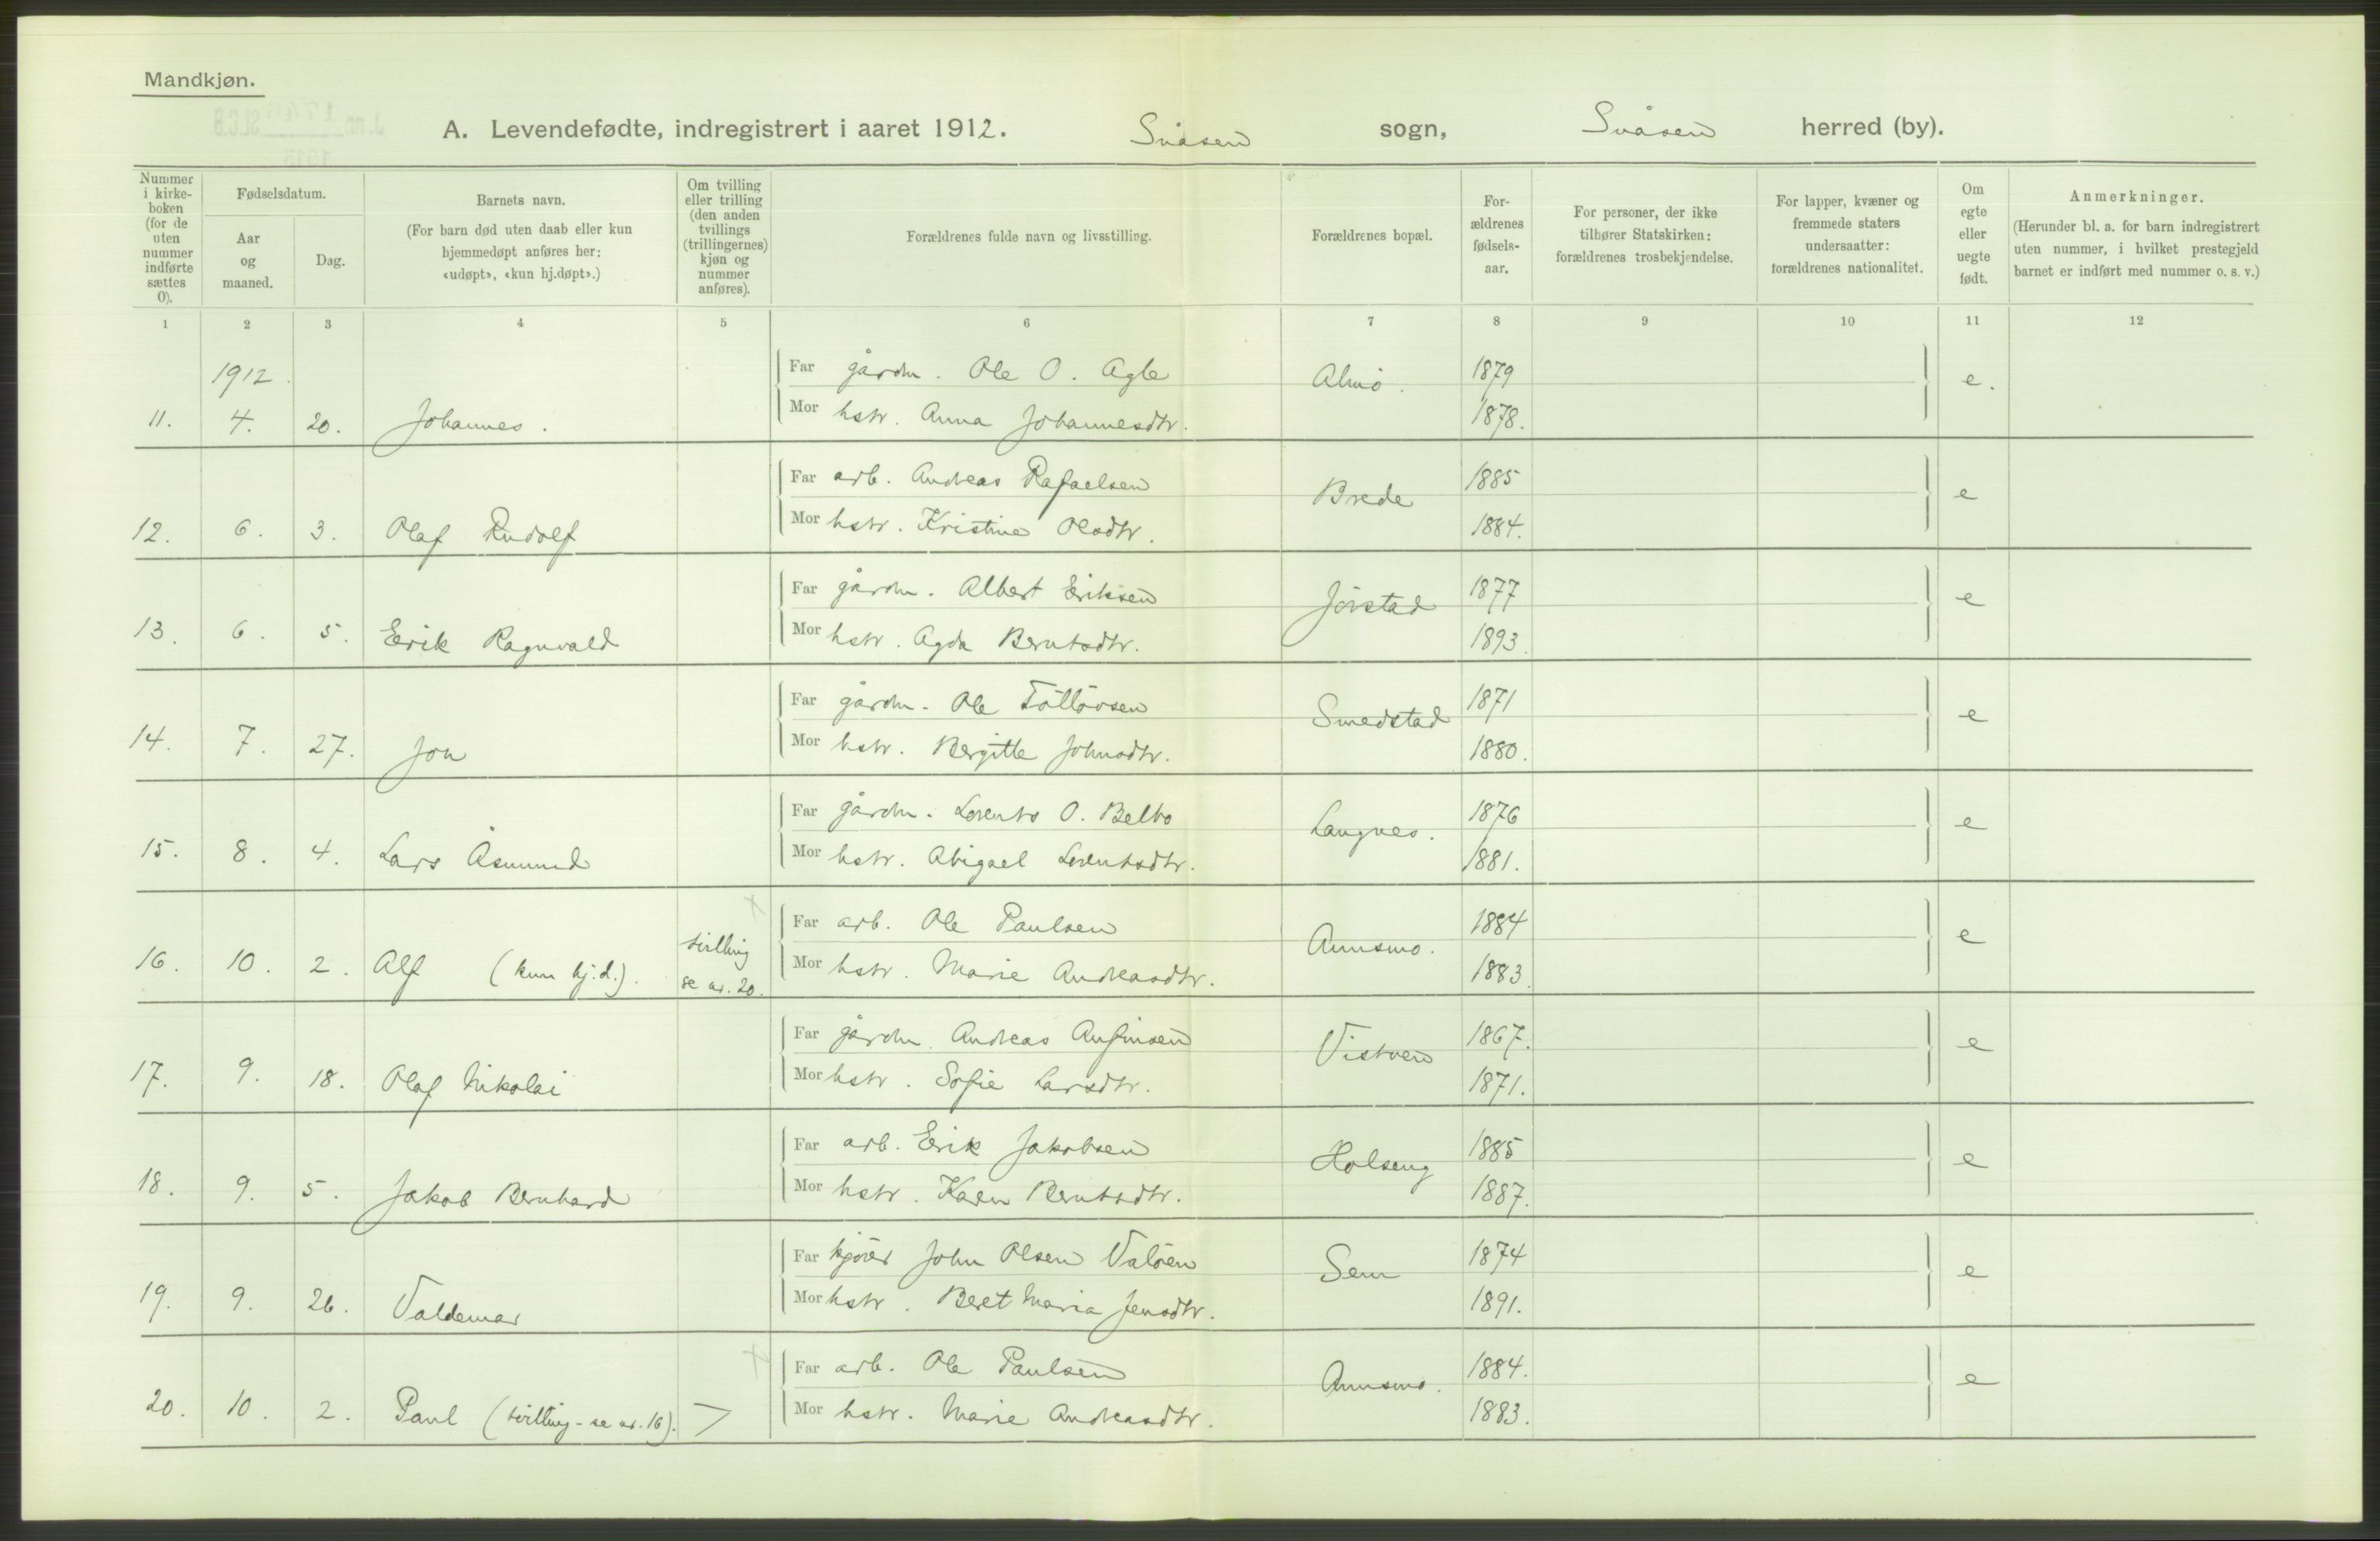 Mandkjøn.
A. Levendefødte, indregistrert i aaret 1912. Snåsen sogn, Snåsen herred (by).
Nummer i kirke- boken (for de uten nummer indførte sættes 0).
Fødselsdatum.
Aar og maaned.
Dag.
Barnets navn.
(For barn død uten daab eller kun hjemmedøpt anføres her: «udøpt», «kun hj.døpt».)
Om tvilling eller trilling (den anden tvillings (trillingernes) kjøn og nummer anføres).
Forældrenes fulde navn og livsstilling.
Forældrenes bopæl.
For- ældrenes fødsels- aar.
For personer, der ikke tilhører Statskirken: forældrenes trosbekjendelse.
For lapper, kvæner og fremmede staters undersaatter: forældrenes nationalitet.
Om egte eller uegte født.
Anmerkninger.
(Herunder bl. a. for barn indregistrert uten nummer, i hvilket prestegjeld barnet er indført med nummer o. s. v.)
1 2 3 4 5 6 7 8 9 10 11 12
1912. Far gårdm. Ole O. Agle Almo. 1879 e.
11. 4. 20. Johannes. Mor hstr. Anna Johannesdtr. 1878.
Far arb. Andreas Rafaelsen Brede 1885 e
12. 6. 3. Olaf Rudolf Mor hstr. Kristine Olsdtr. 1884.
Far gårdm. Albert Eriksen Jørstad 1877 e
13. 6. 5. Erik Ragnvald Mor hstr. Agda Berntsdtr. 1893.
Far gårdm. Ole Tölløvsen Smedstad 1871 e
14. 7. 27. Jon Mor hstr. Bergitte Johnsdtr. 1880.
Far gårdm. Lorents O. Belbo Langnes. 1876 e
15. 8. 4. Lars Åsmund Mor hstr. Abigael Lorentsdtr. 1881.
tvilling Far arb. Ole Paulsen Aunsmo. 1884 e
16. 10. 2. Alf (kun hj.d.). se nr. 20. Mor hstr. Marie Andreasdtr. 1883.
Far gårdm. Andreas Anfinsen Vistven 1867. e
17. 9. 18. Olaf Nikolai Mor hstr. Sofie Larsdtr. 1871.
Far arb. Erik Jakobsen Holseng 1885 e
18. 9. 5. Jakob Bernhard Mor hstr. Karen Berntsdtr. 1887.
Far kjører John Olsen Valöen Sem 1874 e
19. 9. 26. Valdemar Mor hstr. Beret Maria Jensdtr. 1891.
Far arb. Ole Paulsen Aunsmo. 1884. e
20. 10. 2. Paul (tvilling - se nr. 16). Mor hstr. Marie Andreasdtr. 1883.